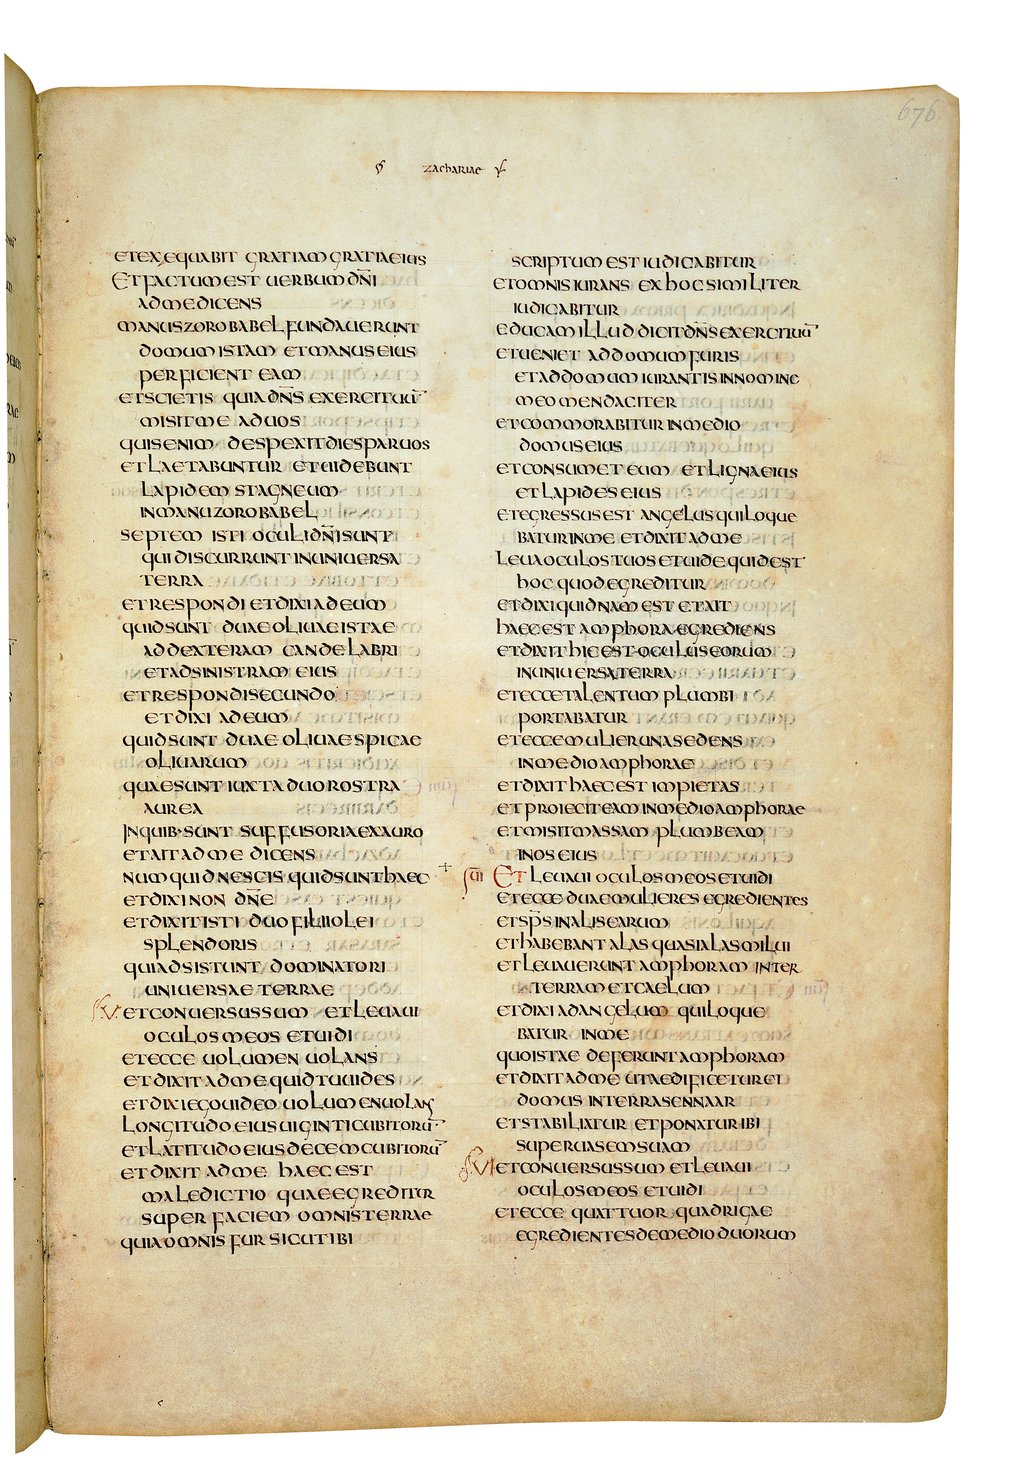 676
ZACHARIAE
ETEXEQUABIT GRATIAM GRATIAEEIUS
ETFACTUMEST UERBUMDN̄I
ADMEDICENS
MANUSZOROBABELFUNDAUERUNT
DOMUMISTAM ETMANUSEIUS
PERFICIENT EAM
ETSCIETIS QUIADN̄SEXERCITUŪ
MISITME ADUOS
QUISENIM DESPEXITDIESPARUOS
ETLAETABUNTUR ETUIDEBUNT
LAPIDEM STAGNEUM
INMANUZOROBABEL
SEPTEM ISTI OCULIDN̄ISUNT
QUIDISCURRUNTINUNIUERSA
TERRA
ETRESPONDI ETDIXIADEUM
QUIDSUNT DUAEOLIUAEISTAE
ADDEXTERAM CANDELABRI
ETADSINISTRAM EIUS
ETRESPONDISECUNDO
ETDIXI ADEUM
QUIDSUNT DUAE OLIUAESPICAE
OLIUARUM
QUAESUNT IUXTADUOROSTRA
AUREA
INQUIB·SUNT SUFFUSORIAEXAURO
ETAITADME DICENS
NUMQUIDNESCIS QUIDSUNTHAEC
ETDIXINON DN̄E
ETDIXITISTI DUOFILIIOLEI
SPLENDORIS
QUIADSISTUNT DOMINATORI
UNIUERSAE TERRAE
ETCONUERSUSSUM ETLEUAUI
OCULOSMEOS ETUIDI
ETECCE UOLUMEN UOLANS
ETDIXITADMEQUIDTUUIDES
ETDIXIEGOUIDEO UOLUMENUOLANS
LONGITUDOEIUSUIGINTICUBITORŪ
ETLATITUDOEIUSDECEMCUBITORŪ
ETDIXIT ADME HAECEST
MALEDICTIO QUAEEGREDITUR
SUPER FACIEM OMNISTERRAE
QUIAOMNIS FUR SICUTIBI
SCRIPTUM EST IUDICABITUR
ETOMNISIURANS EXHOCSIMILITER
IUDICABITUR
EDUCAMILLUD DICITDN̄SEXERCITUŪ
ETUENIET ADDOMUMFURIS
ETADDOMUM IURANTISINNOMINE
MEOMENDACITER
ETCOMMORABITURINMEDIO
DOMUSEIUS
ETCONSUMETEUM ETLIGNAEIUS
ETLAPIDESEIUS
ETEGRESSUSEST ANGELUSQUILOQUE
BATURINME ETDIXITADME
LEUAOCULOSTUOSETUIDEQUIDEST
HOC QUODEGREDITUR
ETDIXIQUIDNAMEST ETAIT
HAECEST AMPHORAEGREDIENS
ETDIXITHICEST OCULUSEORUM
INUNIUERSATERRA
ETECCETALENTUM PLUMBI
PORTABATUR
ETECCEMULIERUNASEDENS
INMEDIOAMPHORAE
ETDIXITHAECEST IMPIETAS
ETPROIECITEAMINMEDIOAMPHORAE
ETMISITMASSAM PLUMBEAM
INOSEIUS
ETLEUAUI OCULOSMEOSETUIDI
ETECCEDUAEMULIERES EGREDIENTES
ETSP̄SINALISEARUM
ETHABEBANTALASQUASIALASMILUI
ETLEUAUERUNT AMPHORAM INTER
TERRAMETCAELUM
ETDIXIADANGELUM QUILOQUE
BATUR INME
QUOISTAE DEFERUNTAMPHORAM
ETDIXITADME UTAEDIFICETUREI
DOMUS INTERRASENNAAR
ETSTABILIATUR ETPONATURIBI
SUPERUASEMSUAM
VI ETCONUERSUSSUM ETLEUAUI
OCULOSMEOS ETUIDI
ETECCE QUATTUOR QUADRIGAE
EGREDIENTESDEMEDIODUORUM